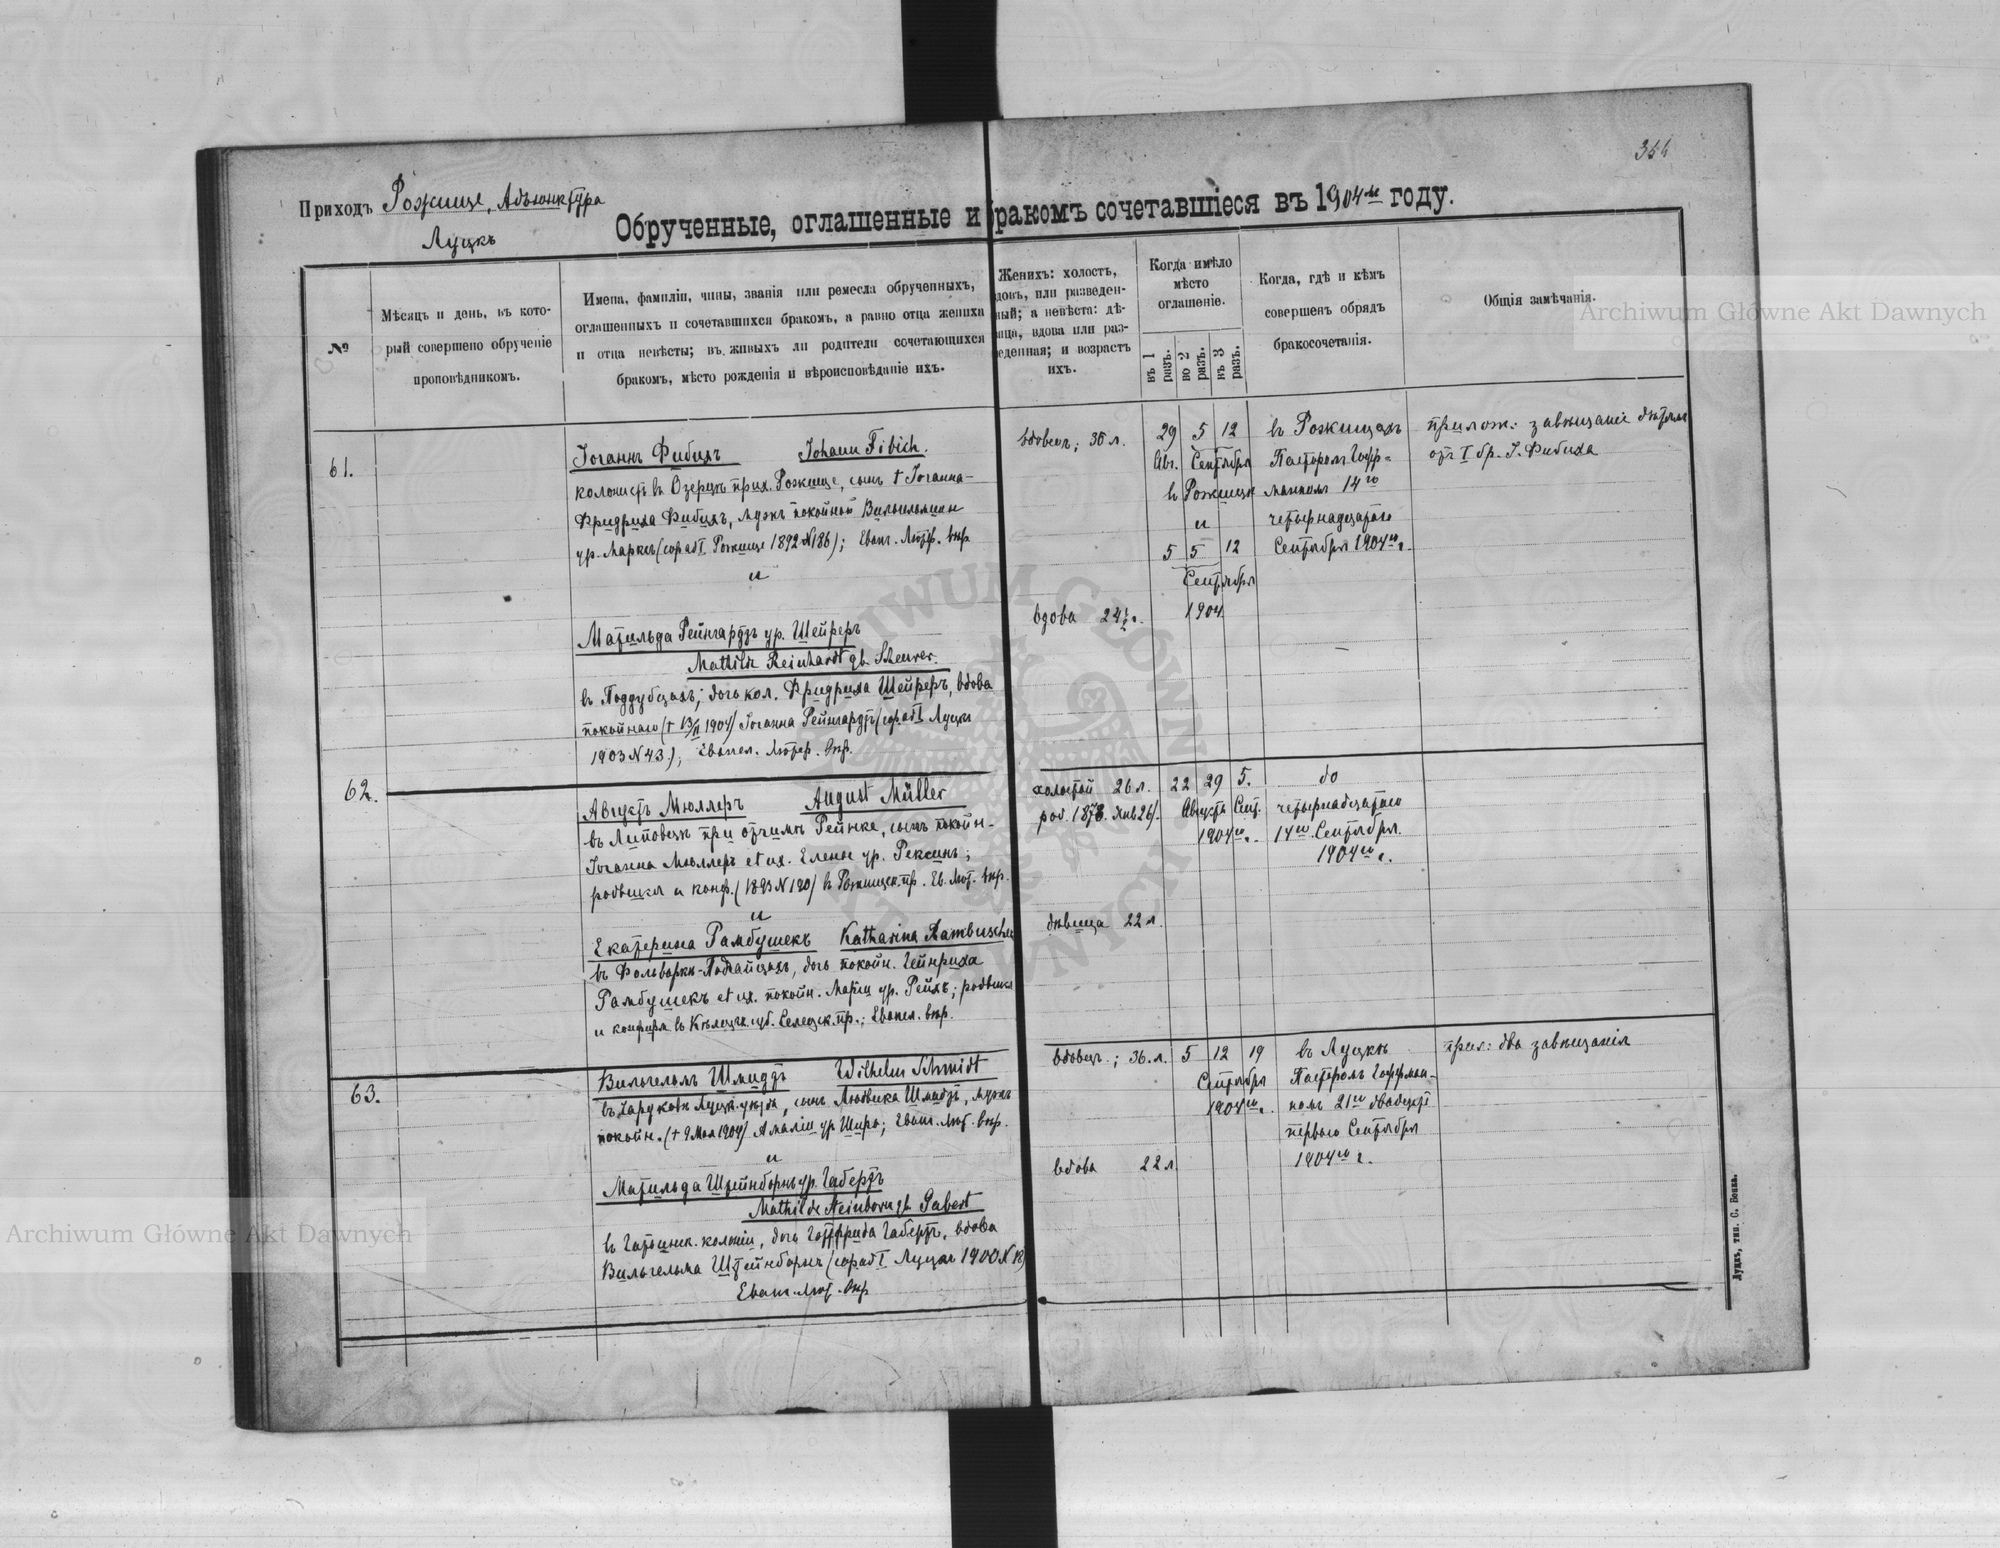 354
Приходъ Рожище, Адъюнктура
Луцкъ
Обрученные, оглашенные и бракомъ сочетавшіеся въ 1904м году.
№
Мѣсяцъ и день, въ кото-
рый совершено обрученіе
проповѣдникомъ.
Имена, фамиліи, чины, званія или ремесла обрученныхъ,
оглашенныхъ и сочетавшихся бракомъ, а равно отца жениха
и отца невѣсты; въ живыхъ ли родители сочетающихся
бракомъ, мѣсто рожденія и вѣроисповѣданіе ихъ.
Женихъ: холостъ,
вдовъ, или разведен-
ный; а невѣста: дѣ-
вица, вдова или раз-
веденная; и возрастъ
ихъ.
Когда имѣло
мѣсто
оглашеніе.
въ 1 разъ.
во 2 разъ.
въ 3 разъ.
Когда, гдѣ и кѣмъ
совершенъ обрядъ
бракосочетанія.
Общія замѣчанія.
61.
Іоганнъ Фибихъ Johann Fibich.
колонистъ въ Озерцѣ прих. Рожище, сынъ † Іоганна-
Фридриха Фибихъ, мужъ покойной Вильгельмины
ур. Марксъ (cop ad I Рожище 1892 N 186); Еванг. Лютр. вѣр
и
Матильда Рейнгардтъ ур. Шейреръ
Mathilde Reinhardt gb. Scheurer.
въ Поддубцахъ; дочь кол. Фридриха Шейреръ, вдова
покойнаго († 13/II 1904) Іоганна Рейнгардтъ (cop ad I Луцкъ
1903 N 43.); Евангел. Лютер. вѣр.
вдовецъ; 36 л.
вдова 24½ г.
29 5 12
Авг. Сентября
въ Рожищѣ
и
5 5 12
Сентября
1904
въ Рожищахъ
Пасторомъ Гофф-
манномъ 14го
четырнадцатаго
Сентября 1904го г.
прилож: завѣщаніе дѣтямъ
отъ I бр. І. Фибиха
62.
Августъ Мюллеръ August Müller
въ Липовецъ при отчимѣ Рейнке, сынъ покойн-
Іоганна Мюллеръ et ux. Елены ур. Рексинъ;
родивш и конф. (1893 N 190) въ Рожищск. пр. Ев. Лют. вѣр.
и
Екатерина Рамбушекъ Katharina Rambuschek
въ Фольваркѣ-Подгайцахъ, дочь покойн. Гейнриха
Рамбушекъ et ux. покойн. Маріи ур. Рейхъ; родивш
и конфирм. въ Кѣлецк. губ. Селецк. пр.; Евангел. вѣр.
холостой 26 л.
род. 1878. Янв 26).
дѣвица 22 л.
22 29 5.
Августа Сент.
1904го г.
do
четырнадцатаго
14го Сентября
1904го г.
63.
Вильгельмъ Шмидтъ Wilhelm Schmidt
въ Харуковѣ Луцк. уѣзда, сынъ Людвика Шмидтъ, мужъ
покойн. († 9 Мая 1904) Амаліи ур Ширъ; Еванг. Лют. вѣр.
и
Матильда Штейнборнъ ур. Габертъ
Mathilde Steinborn gb. Gabert
въ колоніи, дочь Готтфрида Габертъ, вдова
Вильгельма Штейнборнъ (cop ad I Луцкъ 1900 N
Еванг. Лют. вѣр
вдовецъ.; 36. л.
вдова 22 л
5 12 19
Сентября
1904го г.
въ Луцкѣ
Пасторомъ Гоффман-
номъ 21го двадцать
перваго Сентября
1904го г.
прил: два завѣщанія
Луцкъ, тип. С. Бонка.
Archiwum Główne Akt Dawnych
Archiwum Główne Akt Dawnych
ARCHIWUM GŁÓWNE AKT DAWNYCH